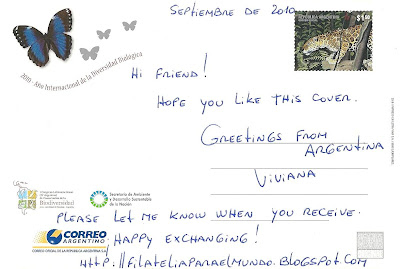 SEPTIEMBRE DE 2010
REPÚBLICA ARGENTINA
2010 - Año Internacional de la Diversidad Biológica
HI FRIEND!
HOPE YOU LIKE THIS COVER.
GREETINGS FROM
ARGENTINA
VIVIANA
Biodiversidad
Secretaría de Ambiente
y Desarrollo Sustentable
de la Nación
PLEASE LET ME KNOW WHEN YOU RECEIVE.
CORREO
ARGENTINO
CORREO OFICIAL DE LA REPUBLICA ARGENTINA S.A.
HAPPY EXCHANGING!
HTTP://FILATELIAPARAELMUNDO.BLOGSPOT.COM